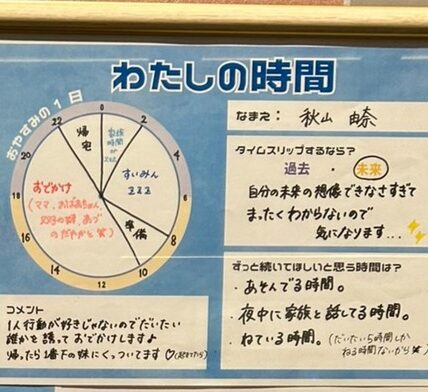 わたしの時間
おやすみの1日
0
2
4
6
8
10
12
14
16
18
20
22
帰宅
家族
時間
すいみん
zzz
準備
おでかけ
コメント
1人行動が好きじゃないのでだいたい
誰かを誘っておでかけしますよ
帰ったら1番下の妹にくっついてます♡
なまえ：秋山 由奈
タイムスリップするなら？
過去・未来
自分の未来の想像できなさすぎて
まったくわからないので
気になります...
ずっと続いてほしいと思う時間は？
・あそんでる時間。
・夜中に家族と話してる時間。
・ねている時間。（だいたい5時間しか
ねる時間ないから笑）